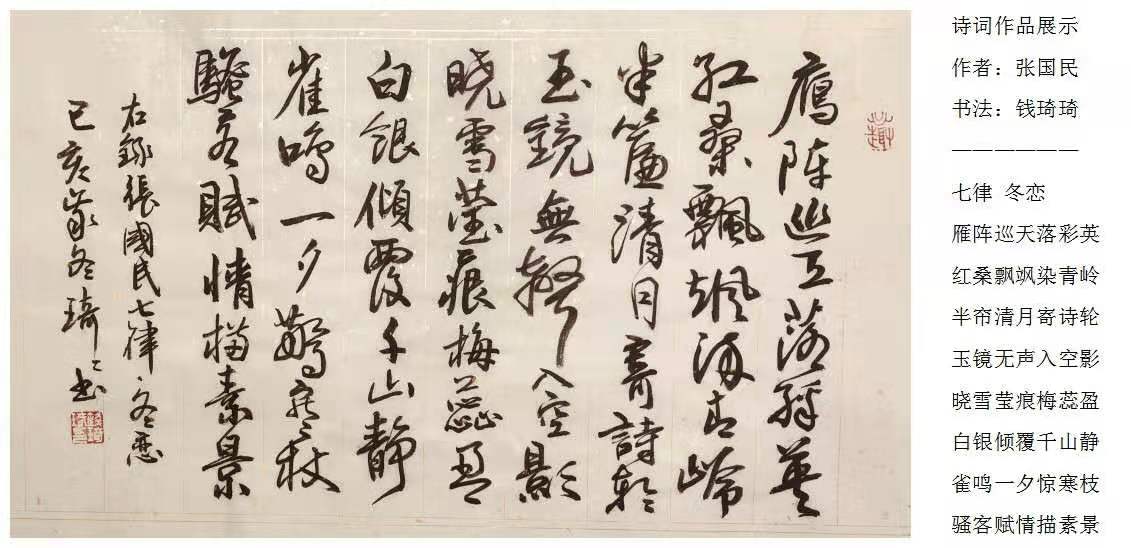 鴈陣巡天落彩英
紅桑飄颯染青嶺
半簾清月寄詩輪
玉鏡無聲入空影
曉雪瑩痕梅蕊盈
白銀傾覆千山靜
雀鳴一夕驚寒枝
騷客賦情描素景
右錄張國民七律冬恋
己亥歲冬琦々书
诗词作品展示
作者：张国民
书法：钱琦琦
——————
七律 冬恋
雁阵巡天落彩英
红桑飘飒染青岭
半帘清月寄诗轮
玉镜无声入空影
晓雪莹痕梅蕊盈
白银倾覆千山静
雀鸣一夕惊寒枝
骚客赋情描素景